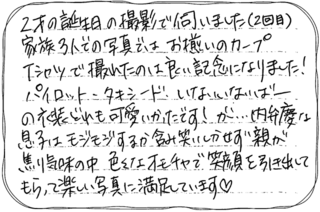 2才の誕生日の撮影で伺いました(2回目)
家族3人での写真ではお揃いのカープ
Tシャツで撮れたのは良い記念になりました!
パイロット・タキシード・いないいないばー
の衣装どれも可愛いかったです!が…内弁慶な
息子はモジモジするか含み笑いしかせず親が
焦り気味の中 色々なオモチャで笑顔を引き出して
もらって楽しい写真に満足しています♡